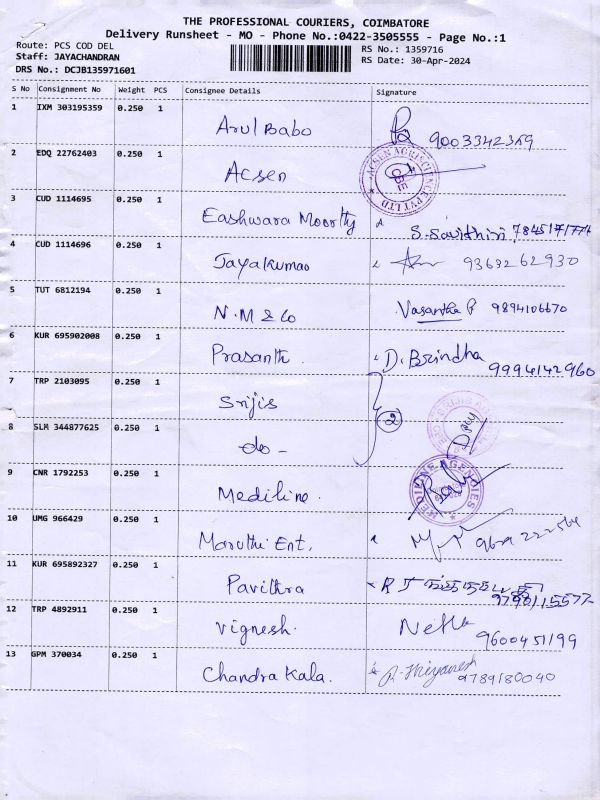 THE PROFESSIONAL COURIERS, COIMBATORE
Delivery Runsheet - MO - Phone No.:0422-3505555 - Page No.:1
Route: PCS COD DEL
Staff: JAYACHANDRAN
DRS No.: DCJB135971601
RS No.: 1359716
RS Date: 30-Apr-2024
S No Consignment No Weight PCS Consignee Details Signature
1 IXM 303195359 0.250 1
Arul Babo 9003342369
2 EDQ 22762403 0.250 1
Acsen ACSEN AGRISCIENCE PVT LTD CBE
3 CUD 1114695 0.250 1
Eashwara Moorthy S. Savithiri 7845171774
4 CUD 1114696 0.250 1
Jayakumao 9363262930
5 TUT 6812194 0.250 1
N.M & Co Vasantha P 9894106670
6 KUR 695902008 0.250 1
Prasanth. D. Brindha 9994142960
7 TRP 2103095 0.250 1
Srijis
2
8 SLM 344877625 0.250 1
- do -
9 CNR 1792253 0.250 1
Mediline. MEDILINE AGENCIES
10 UMG 966429 0.250 1
Maruthi Ent.
11 KUR 695892327 0.250 1
Pavithra R J
12 TRP 4892911 0.250 1
Vignesh. 9600451199
13 GPM 370034 0.250 1
Chandra Kala. 9789180040